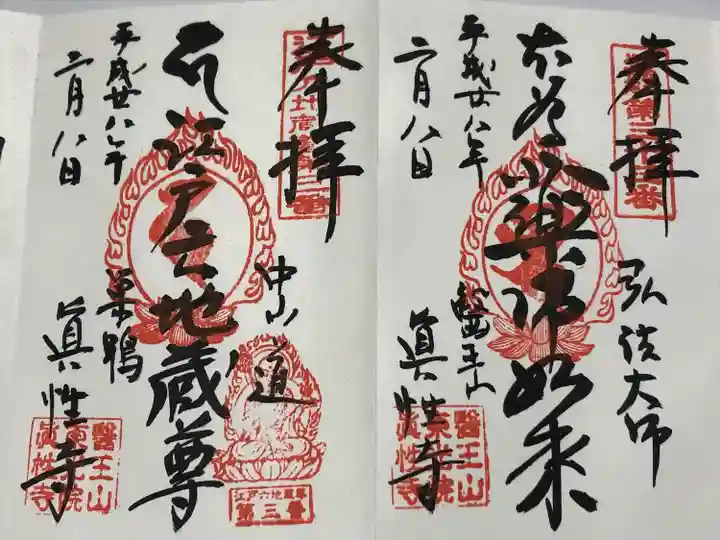 奉拝
弘法大師
本尊薬師如来
平成廿八年
二月八日
醫王山
眞性寺
醫王山
東光院
眞性寺
奉拝
中山道
江戸六地蔵尊
平成廿八年
二月八日
巣鴨
眞性寺
江戸六地蔵尊
第三番
醫王山
東光院
眞性寺